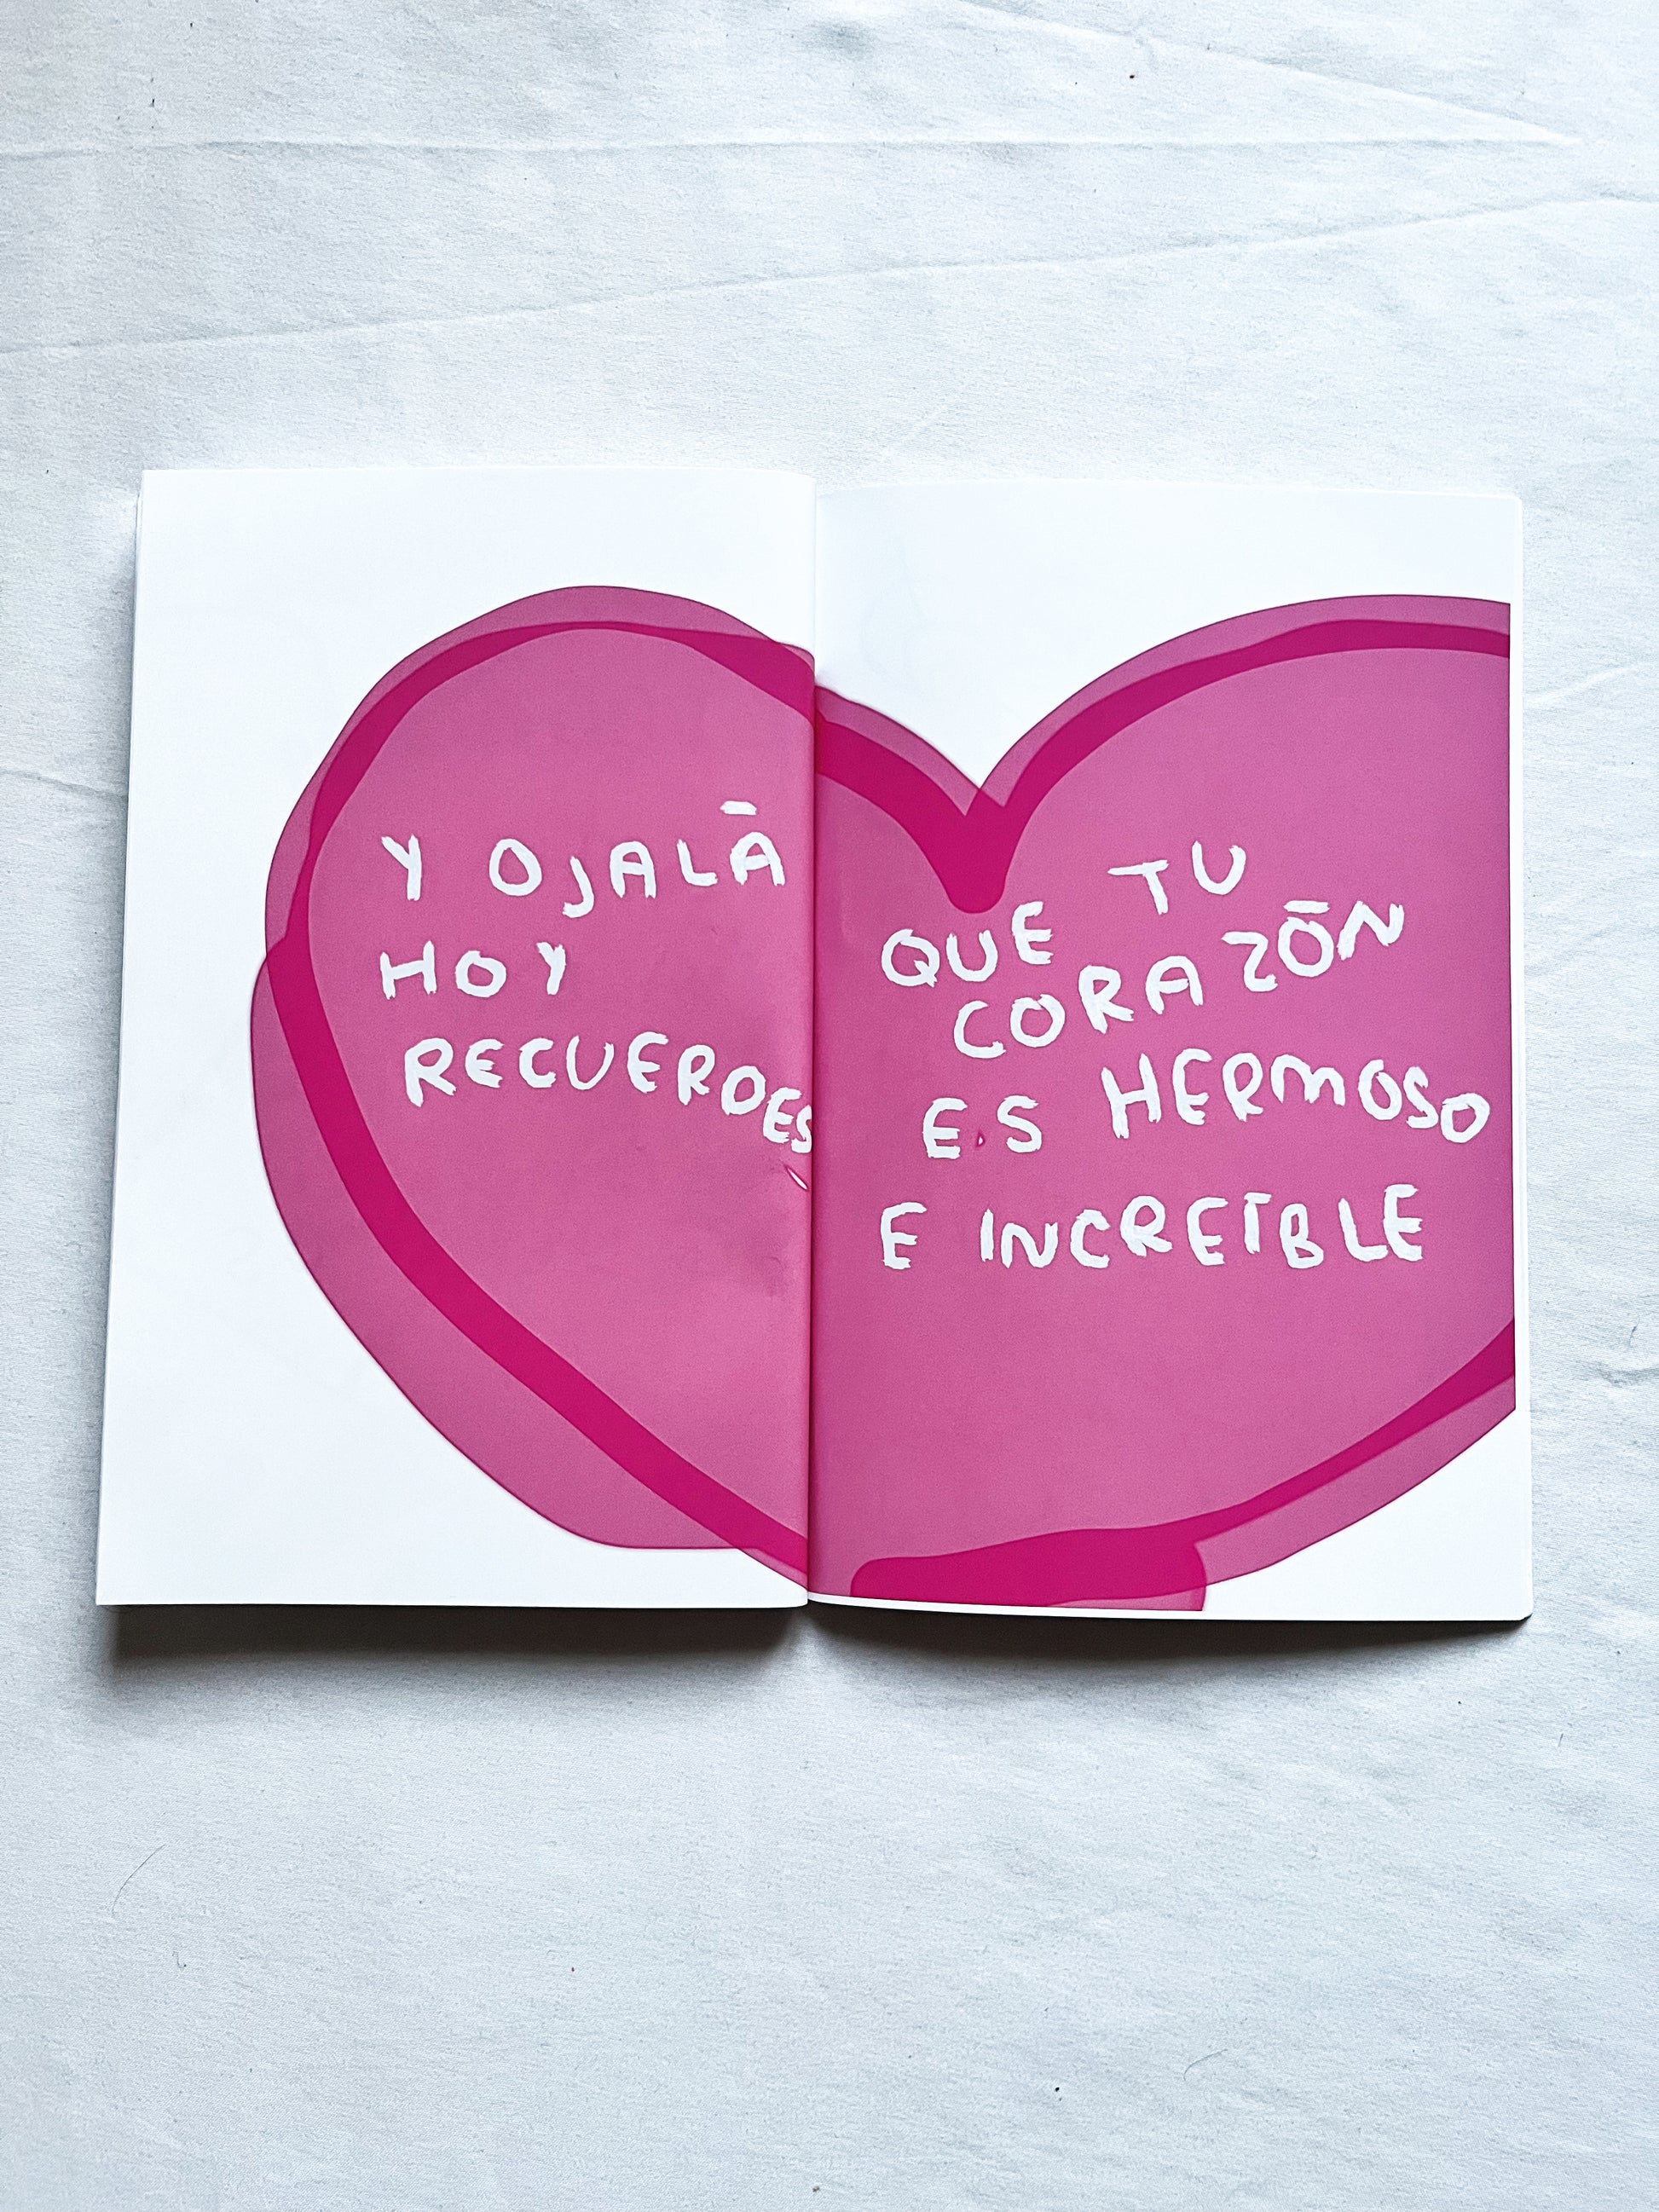 Y OJALÁ
HOY
RECUERDES
QUE TU
CORAZÓN
ES HERMOSO
E INCREÍBLE